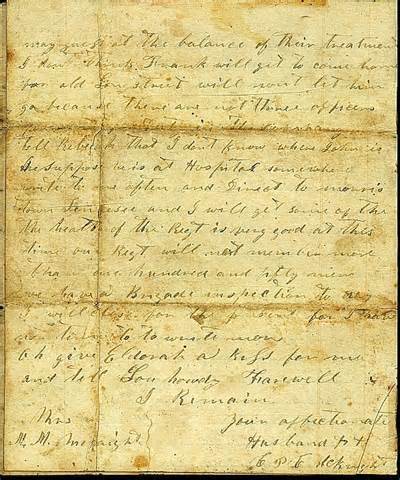 may guess at the balance of their treatment
I dont think Frank will get to come home
for old Longstreet will not let him
go because there are not three officers
in the company
Tell Rebecah that I don't know where John is
He suppose he is at Hospital somewhere
write to me often and Direct to morris
town Tennessee and I will get some of the
the health of the Regt is very good at this
time our Regt will not number more
than one hundred and fifty men
we have a Brigade inspection to day
I will close for the present for I have
no time to to write more
Oh give Eldorah a Kiss for me
and tell Lou howdy Farewell
I Remain
Your affectionate
Husband
Mrs
M. M.
E P